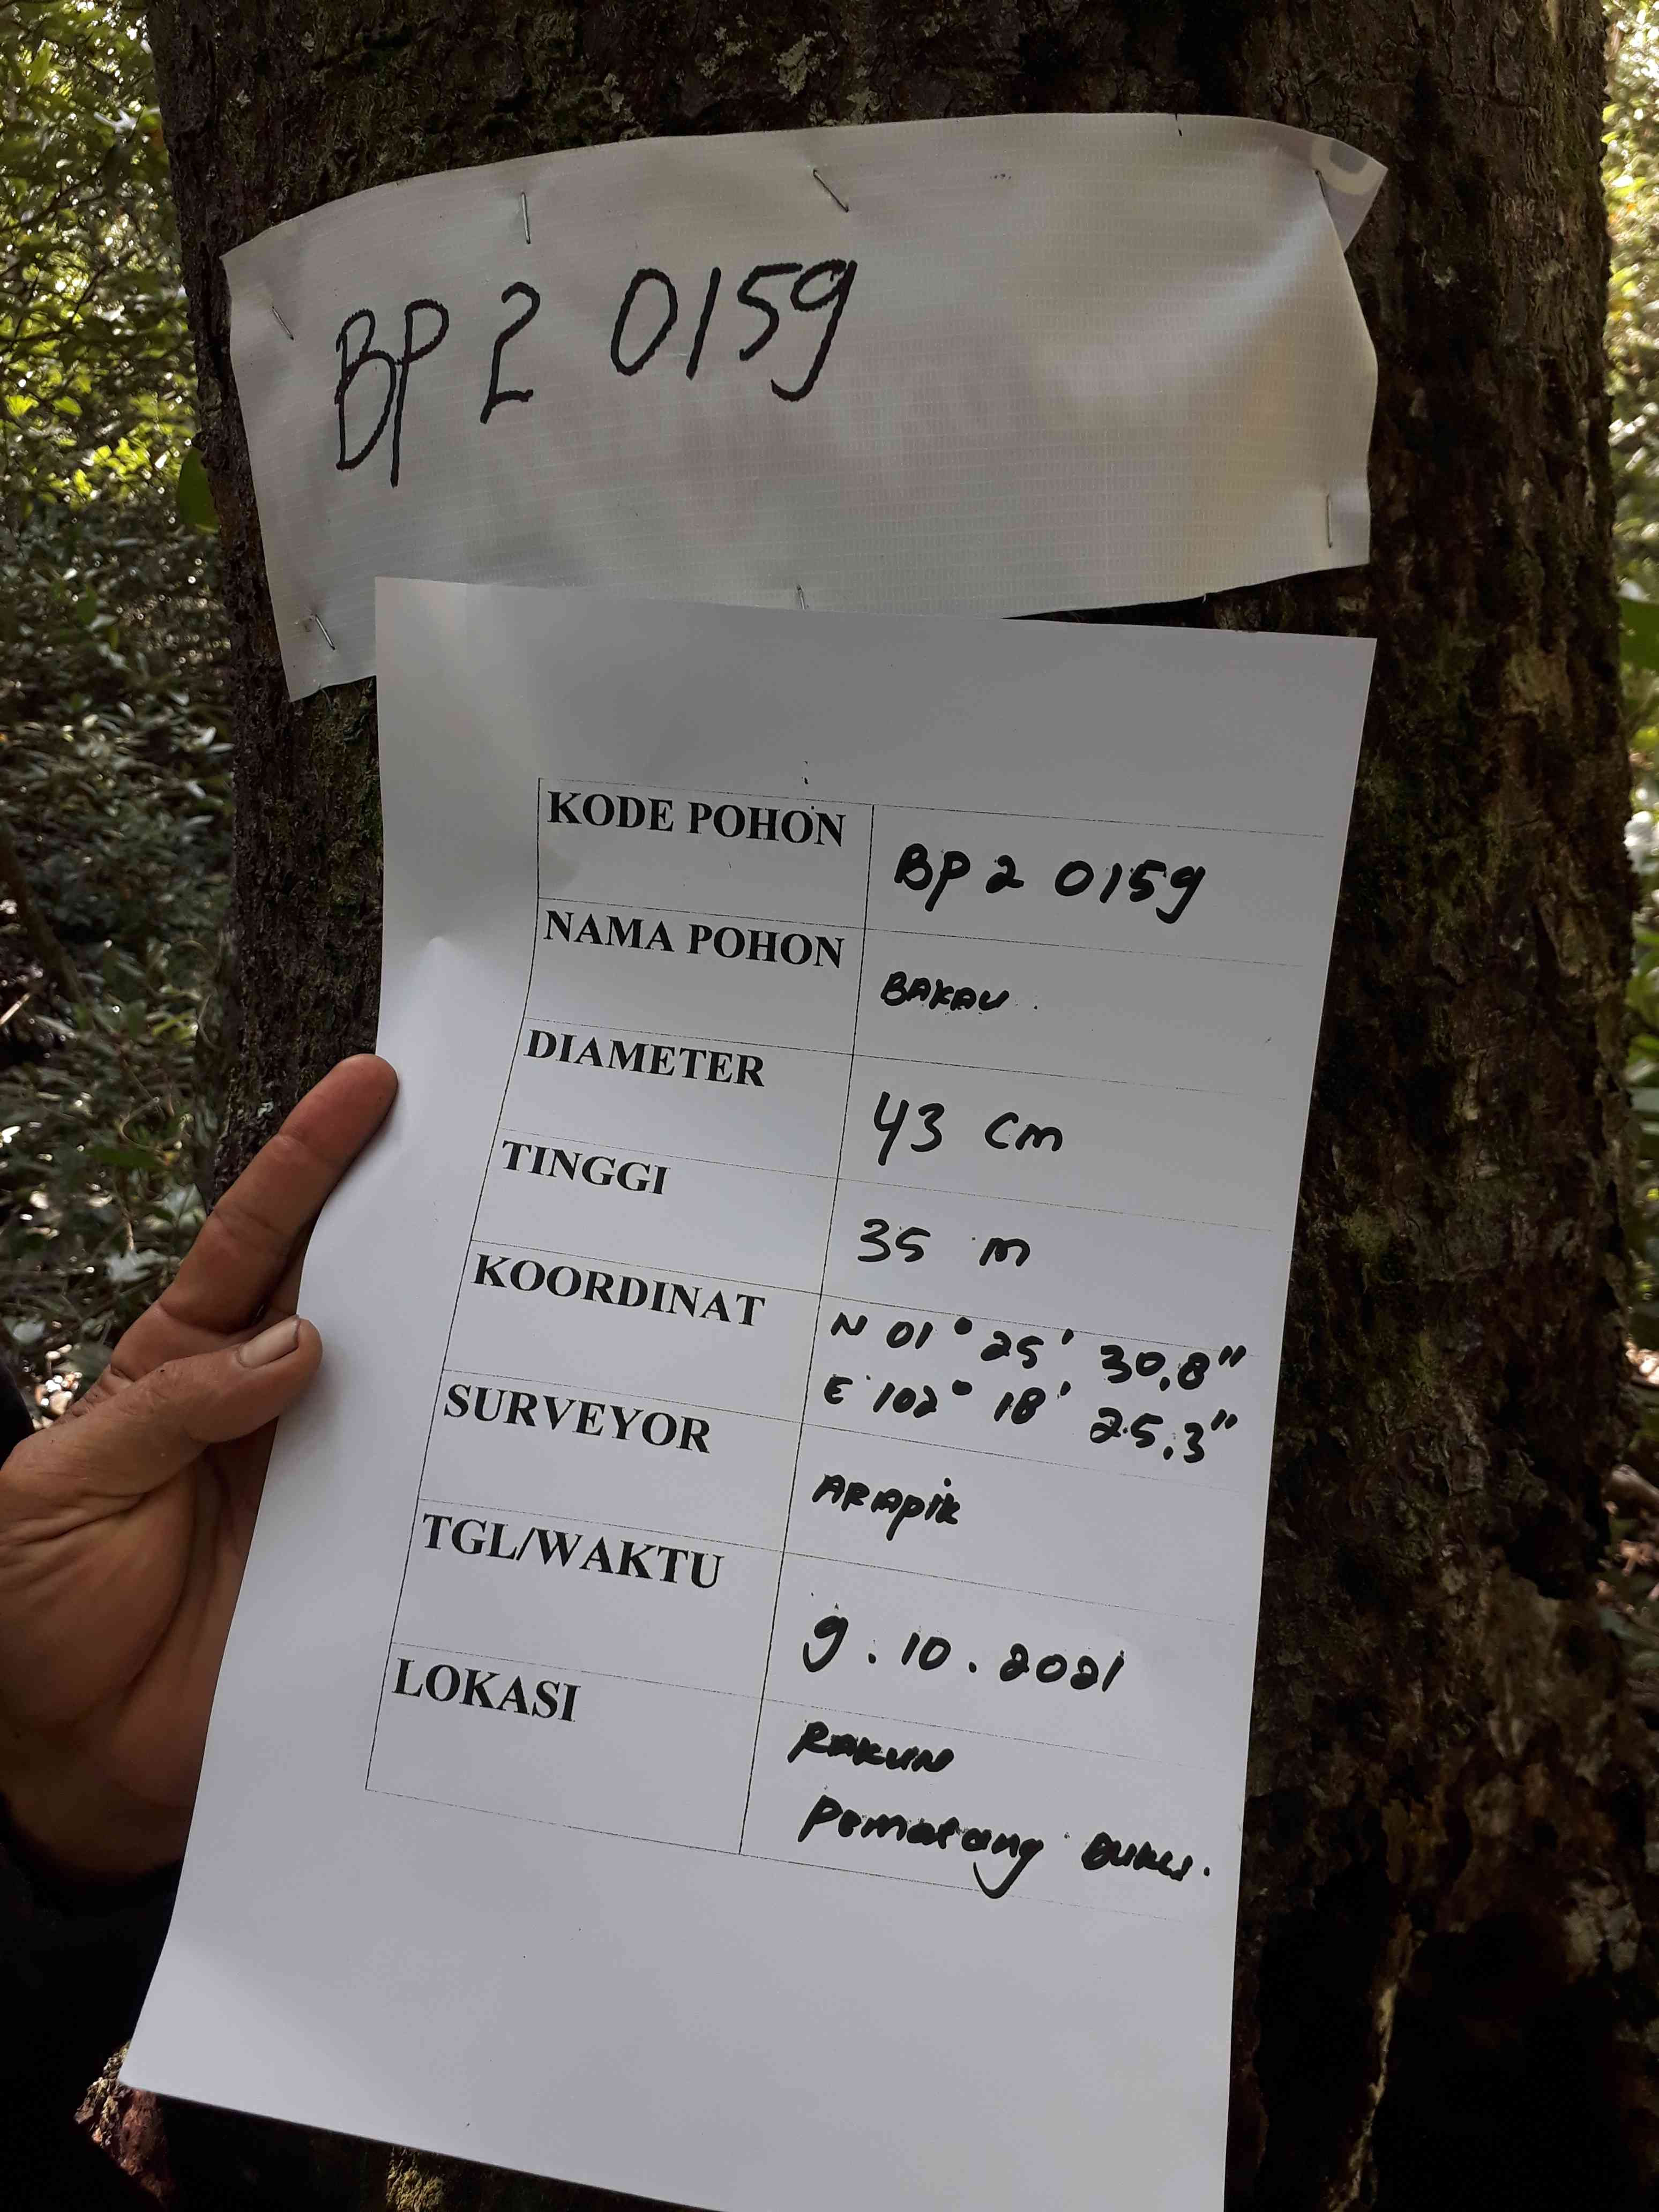 BP 2 0159
KODE POHON BP 2 0159
NAMA POHON BAKAU.
DIAMETER 43 cm
TINGGI 35 m
KOORDINAT N 01° 25' 30,8"
E 102° 18' 25,3"
SURVEYOR ARApik
TGL/WAKTU 9.10.2021
LOKASI RAKUN
Pematang